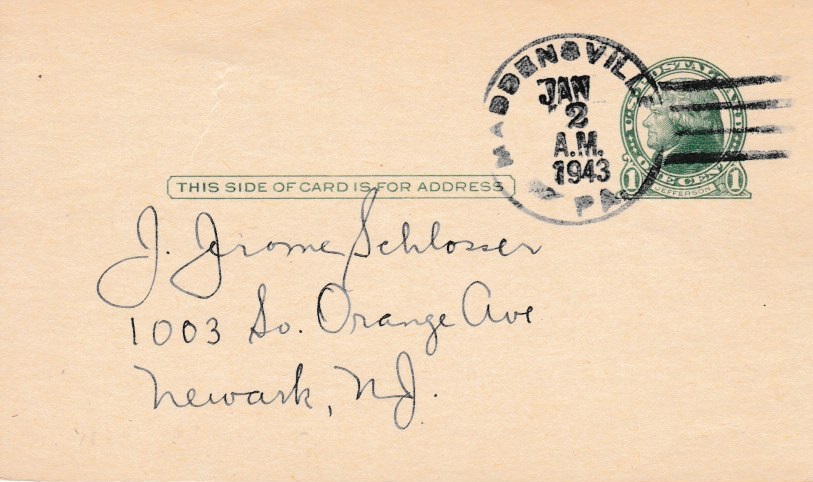 MADDENSVILLE
JAN
2
A.M.
1943
PA
U.S. POSTAL CARD
ONE CENT
1 JEFFERSON 1
THIS SIDE OF CARD IS FOR ADDRESS
J. Jrome Schlosser
1003 So. Orange Ave
Newark, N.J.